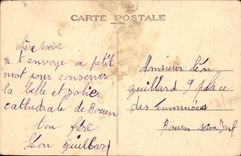 CARTE POSTALE
chère soeur
t'envoye ce petit
mot pour conserver
la belle et jolie
cathédrale de Rouen
ton frère
Léon Guilbard
Monsieur Léon
Guillard 9 place
des
Rouen